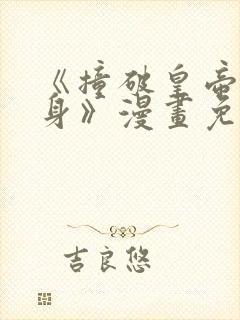 《撞破皇帝
身》漫畫免
吉良悠